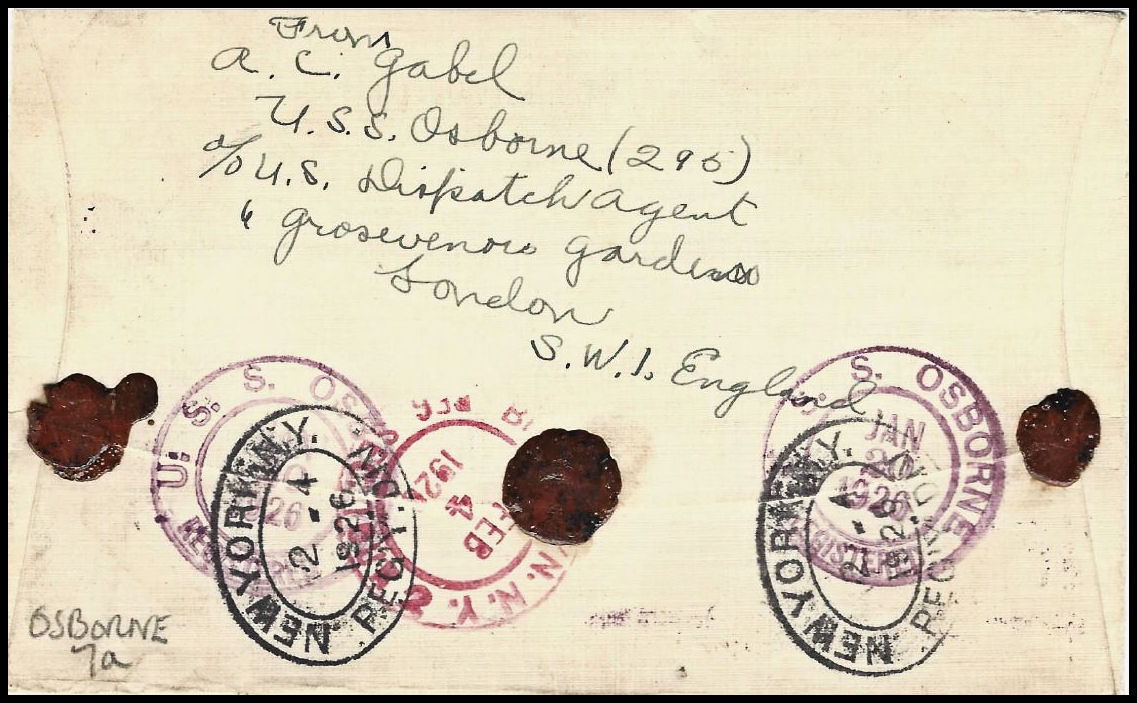 From
A. C. Gabel
U.S.S. Osborne (295)
c/o U.S. Dispatch Agent
6 Grosevenors Gardens
London
S.W.1. England
U. S. S. OS
26
NEW YORK, N.Y.
2 - 4
1926
REG'Y. D
FEB
4
192
N. N.Y.
S. OSBORNE
JAN
20
1926
REGISTERED
NEW YORK, N.Y.
2 - 4
192
REG'Y. D
OSBORNE
7a